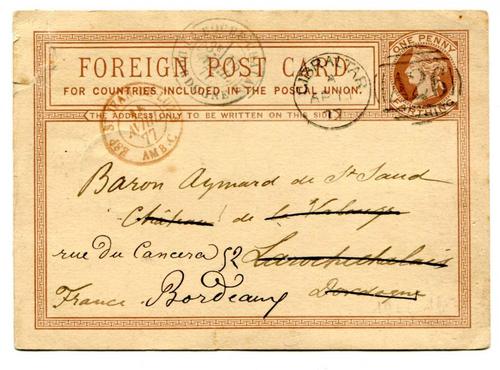 FOREIGN POST CARD
FOR COUNTRIES INCLUDED IN THE POSTAL UNION.
(THE ADDRESS ONLY TO BE WRITTEN ON THIS SIDE)
ONE PENNY
FARTHING
A26
GIBRALTAR
A
AP 11
77
AVRIL
77
AMB. C
Baron Aymard de St Saud
Château de la Valouze
rue du Cancera 52 Larochechalais
France Bordeaux Dordogne